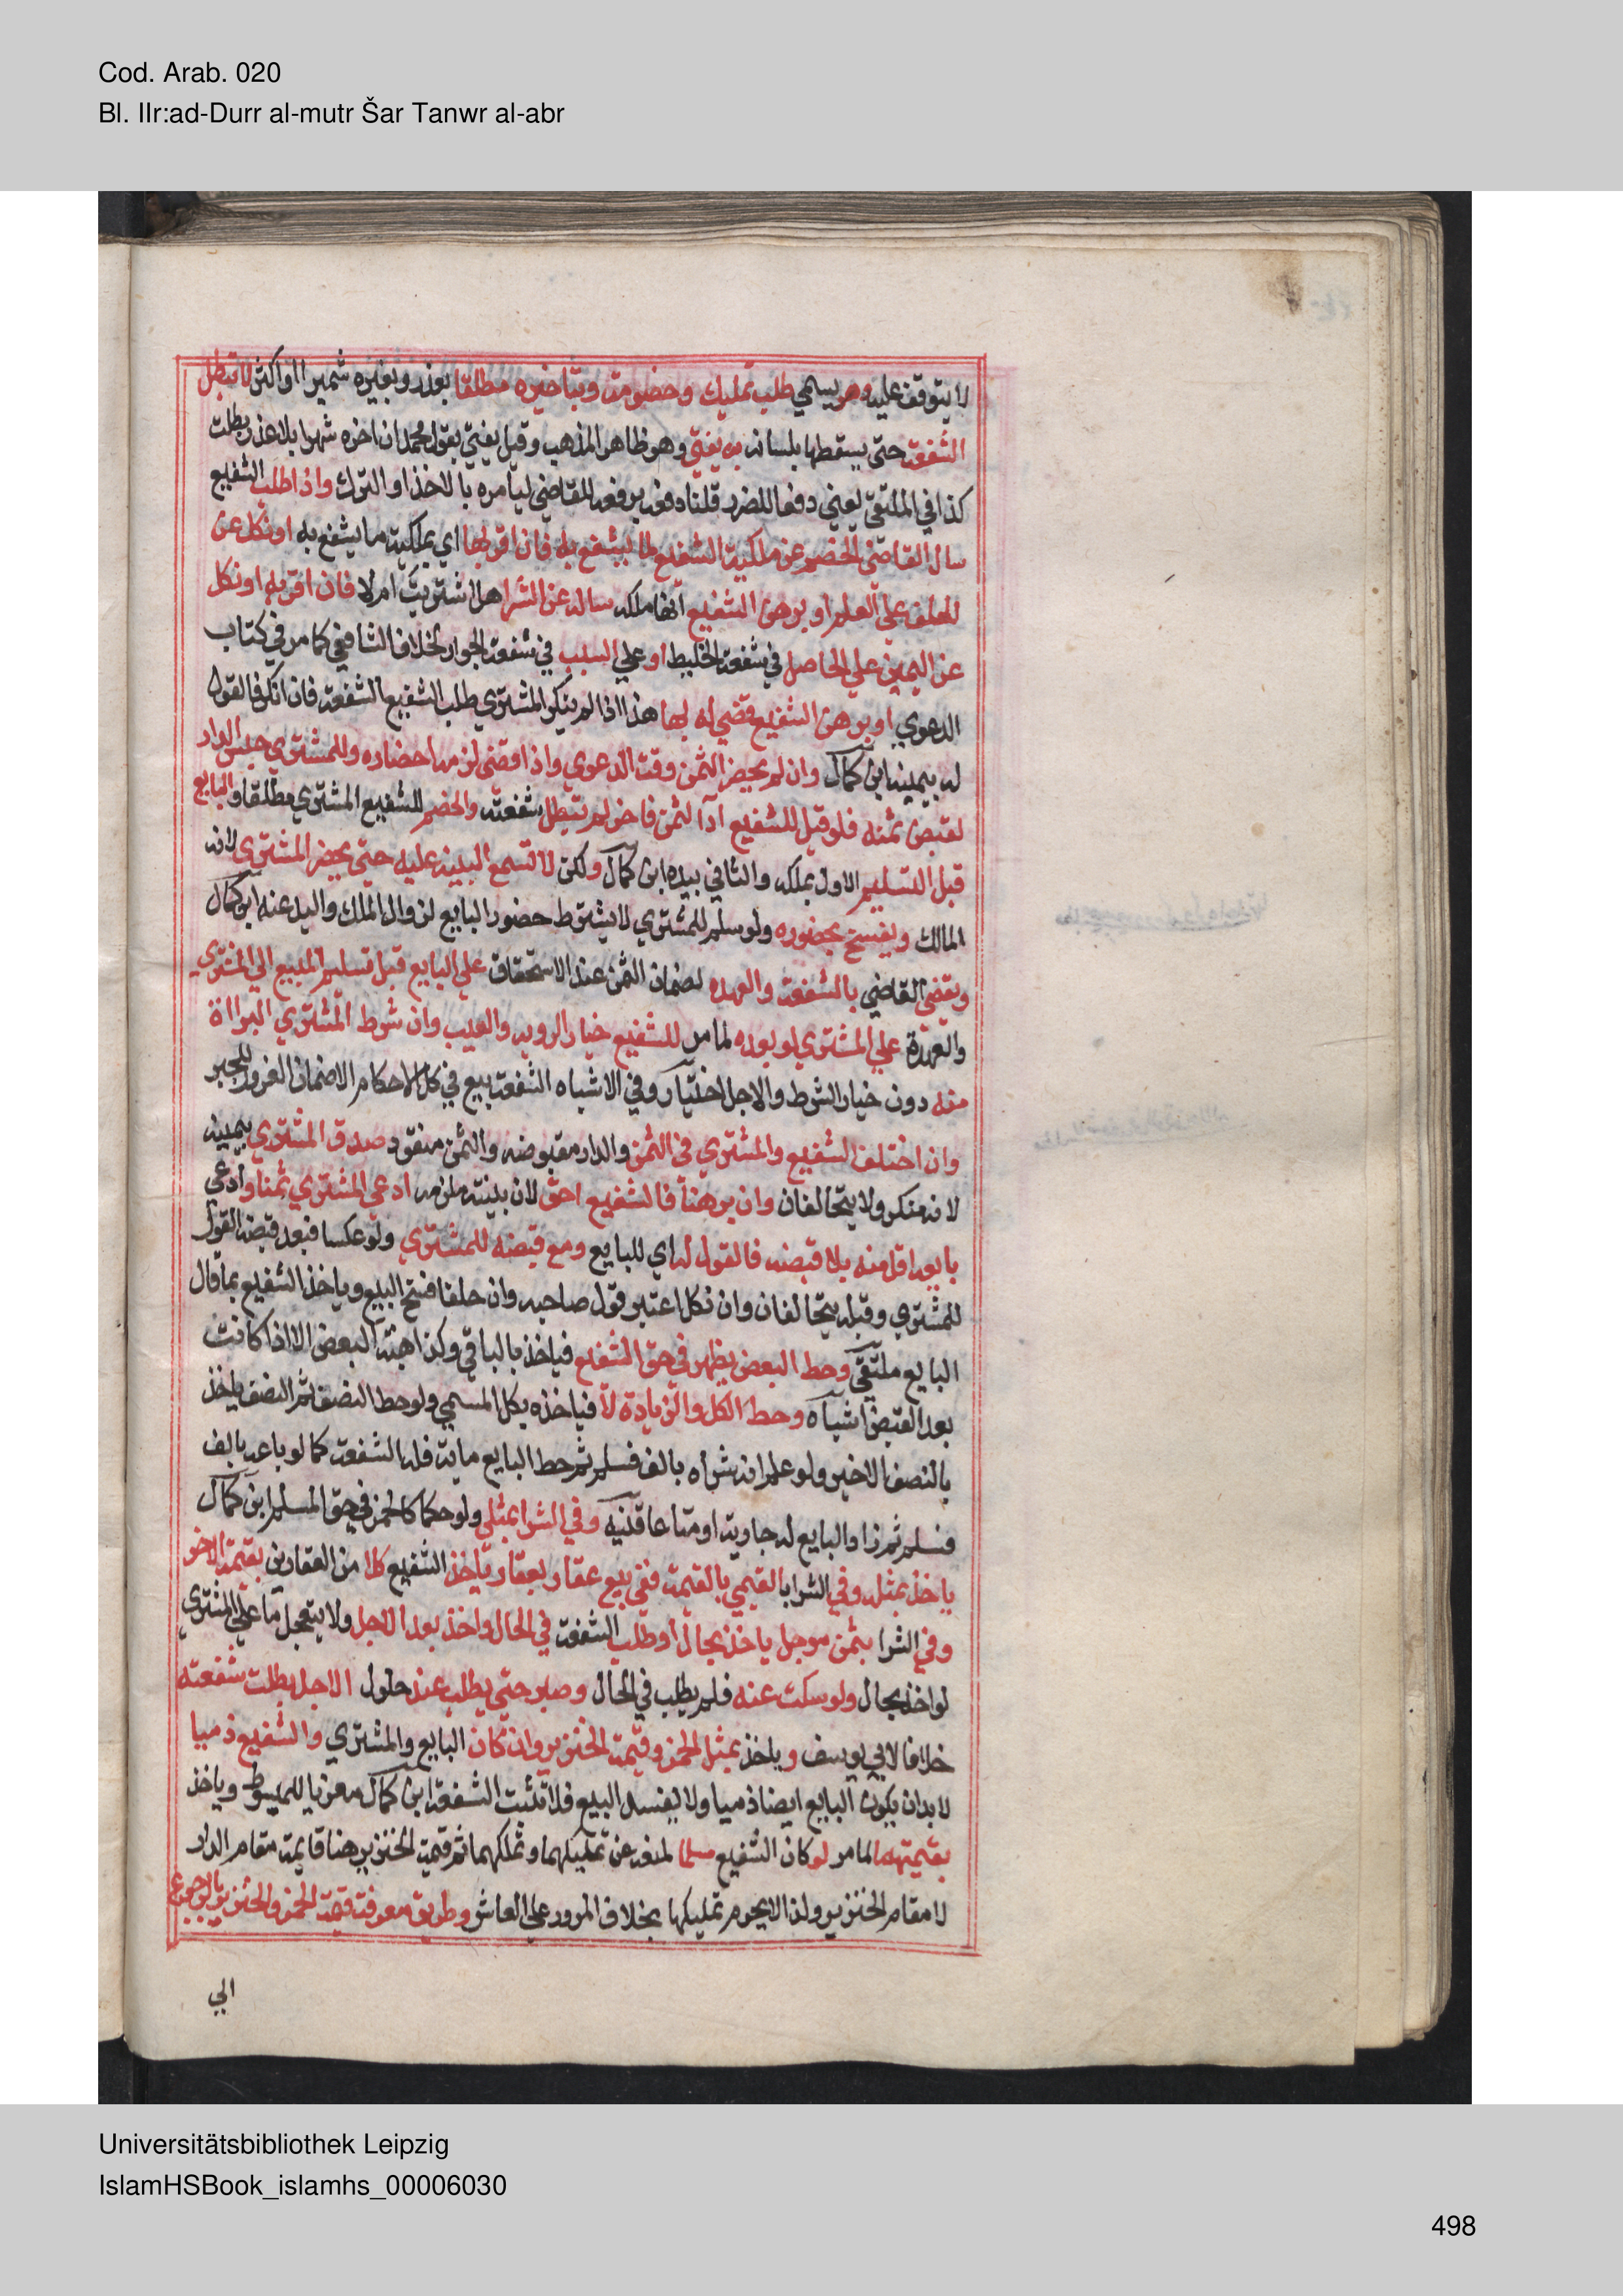 Cod. Arab. 020
Bl. IIr:ad-Durr al-mutr Šar Tanwr al-abr
لا يتوقف عليه وهو يسمي طلب تمليك وخصومة وبتاخيره مطلقا بعذر وبغيره شهرا او اكثر لا تبطل
الشفعة حتى يسقطها بلسانه به يفتي وهو ظاهر المذهب وقيل يفتي بقول محمد ان اخره شهرا بلا عذر بطلت
كذا في الملتقي يعني دفعا للضرر قلنا دفعه برفعه للقاضي ليامره بالاخذ او الترك واذا طلب الشفيع
سال القاضي الخصم عن ملكية الشفيع لما يشفع به فان اقر بها اي بملكية ما يشفع به او نكل عن
الحلف علي العلم او برهن الشفيع انها ملكه ساله عن الشرا هل اشتريت ام لا فان اقر به او نكل
عن اليمين علي الحاصل في شفعة الخليط او علي السبب في شفعة الجوار لخلاف الشافعي كما مر في كتاب
الدعوي او برهن الشفيع قضي له بها هذا اذا لم ينكر المشتري طلب الشفيع الشفعة فان انكر فالقول
له بيمينه ابن كمال وان لم يحضر الثمن وقت الدعوي واذا قضي لزمه احضاره وللمشتري حبس الدار
لقبض ثمنه فلو قيل للشفيع اد الثمن فاخر لم تبطل شفعته والخصم للشفيع المشتري مطلقا والبايع
قبل التسليم الاول بملكه والثاني بيده ابن كمال ولكن لا تسمع البينة عليه حتي يحضر المشتري لانه
المالك ويفسخ بحضوره ولو سلم للمشتري لا يشترط حضور البايع لزوال الملك واليد عنه ابن كمال
ويقضي القاضي بالشفعة والعهده لضمان الثمن عند الاستحقاق علي البايع قبل تسليم المبيع الي المشتري
والعهدة علي المشتري لو بعده لما مر للشفيع خيار الرويه والعيب وان شرط المشتري البرااة
منه دون خيار الشرط والاجل اختيار وفي الاشباه الشفعة بيع في كل الاحكام الا ضمان الغرور للجبر
وان اختلف الشفيع والمشتري في الثمن والدار مقبوضه والثمن منقود صدق المشتري بيمينه
لانه منكر ولا يتحالفان وان برهنا فالشفيع احق لان بينته ملزمه ادعي المشتري ثمنا وادعي
بايعه اقل منه بلا قبضه فالقول له اي للبايع ومع قبضه للمشتري ولو عكسا فبعد قبضه القول
للمشتري وقبله يتحالفان وان نكل اعتبر قول صاحبه وان حلفا فسخ البيع وياخذ الشفيع بما قال
البايع ملتقي وحط البعض يظهر في حق الشفيع فياخذ بالباقي وكذا هبة البعض الا اذا كانت
بعد القبض اشباه وحط الكل والزيادة لا فياخذه بكل المسمي ولو حط النصف ثم النصف ياخذ
بالنصف الاخير ولو علم انه شراه بالف فسلم ثم حط البايع ماية فله الشفعة كما لو باعه بالف
فسلم ثم زاد البايع له جارية او متاعا قنيه وفي الشرا بمثلي ولو حكما كالخمر في حق المسلم ابن كمال
ياخذ بمثله وفي الشرا بالقيمي بالقيمة ففي بيع عقار بعقار ياخذ الشفيع كلا من العقارين بقيمة الاخر
وفي الشرا بثمن موجل ياخذ بحال او طلب الشفعة في الحال واخذ بعد الاجل ولا يتعجل ما علي المشتري
لو اخذ بحال ولو سكت عنه فلم يطلب في الحال وصبر حتي يطلب عند حلول الاجل بطلت شفعته
خلافا لابي يوسف وياخذ بمثل الخمر وقيمة الخنزير وان كان البايع والمشتري والشفيع ذميا
لا بد ان يكون البايع ايضا ذميا ولا يفسد البيع فلا تثبت الشفعة ابن كمال معزيا للمبسوط وياخذ
بقيمتهما لما مر لو كان الشفيع مسلما لمنعه عن تمليكهما وتملكهما ثم قيمة الخنزير هنا قايمة مقام الدار
لا مقام الخنزير ولذا لا يحرم تمليكها بخلاف المرور علي العاشر وطريق معرفة قيمة الخمر والخنزير بالرجوع
الي
Universitätsbibliothek Leipzig
IslamHSBook_islamhs_00006030
498